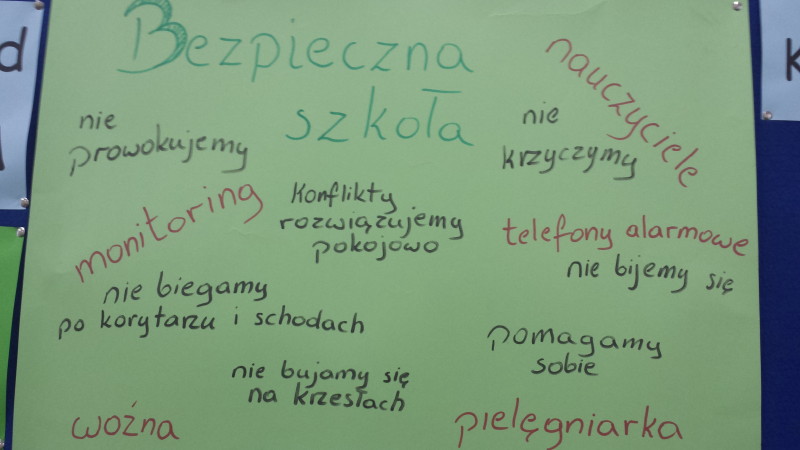 Bezpieczna
szkoła
nauczyciele
nie
prowokujemy
nie
krzyczymy
monitoring
Konflikty
rozwiązujemy
pokojowo
telefony alarmowe
nie bijemy się
nie biegamy
po korytarzu i schodach
pomagamy
sobie
nie bujamy się
na krzesłach
woźna
pielęgniarka
d
k